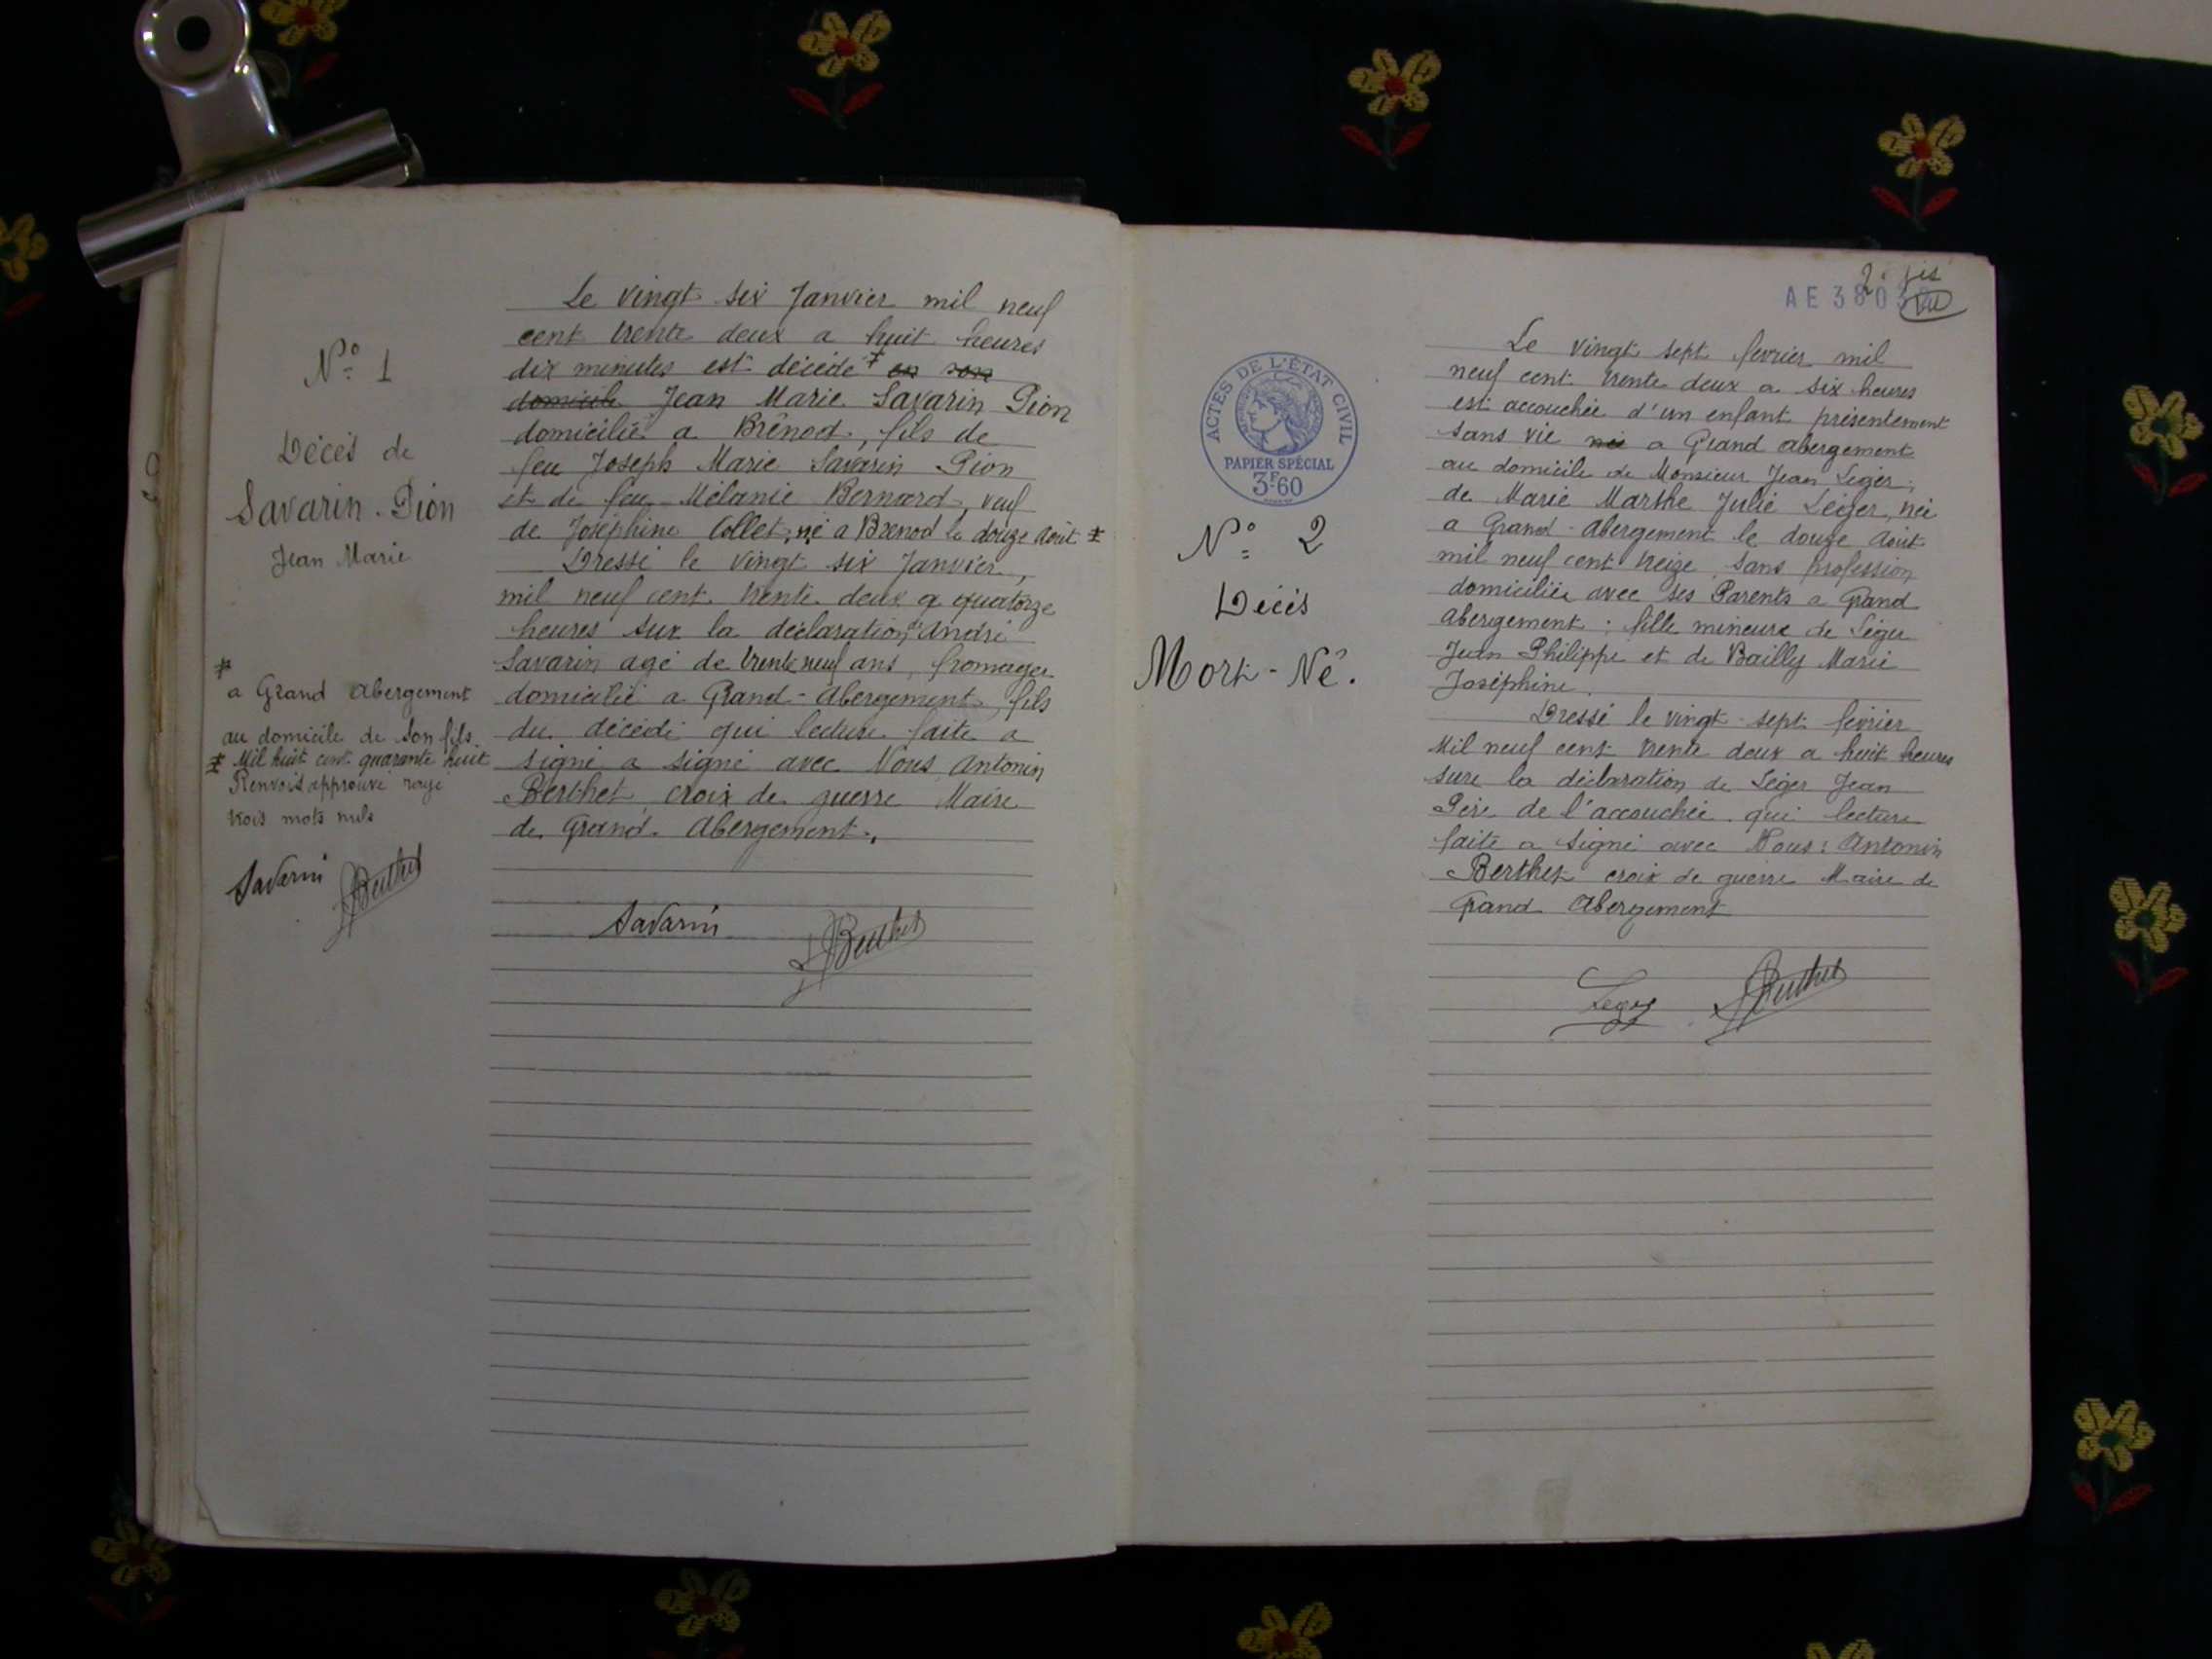 N° 1
Décès de
Savarin-Pion
Jean Marie
Le vingt six Janvier mil neuf
cent trente deux a huit heures
dix minutes est décédé * en son
domicile Jean Marie Savarin Pion
domicilié a Brénod, fils de
feu Joseph Marie Savarin Pion
et de feu Mélanie Bernard, veuf
de Joséphine Collet, né a Brénod le douze Août ‡
Dressé le vingt six Janvier,
mil neuf cent trente deux a quatorze
heures sur la déclaration d'André
Savarin agé de trente neuf ans, fromager
domicilié a Grand-Abergement, fils
du décédé qui lecture faite a
signé a signé avec Nous Antonin
Berthet croix de guerre Maire
de Grand-Abergement.
*
a Grand Abergement
au domicile de son fils.
‡ Mil huit cent quarante huit
Renvois approuvé rayé
trois mots nuls
Savarin Berthet
Savarin Berthet
2
AE 380
Vu
ACTES DE L'ÉTAT CIVIL
PAPIER SPÉCIAL
3F60
N° 2
Décès
Mort-Né.
Le vingt sept février mil
neuf cent trente deux a six heures
est accouchée d'un enfant présentement
sans vie née a Grand Abergement
au domicile de Monsieur Jean Léger,
de Marie Marthe Julie Léger, née
a Grand-Abergement le douze Août
mil neuf cent treize, sans profession
domiciliée avec ses Parents a Grand
Abergement; fille mineure de Léger
Jean Philippe et de Bailly Marie
Joséphine.
Dressé le vingt-sept février
Mil neuf cent trente deux a huit heures
sure la déclaration de Léger Jean
Père de l'accouchée qui lecture
faite a signé avec Nous: Antonin
Berthet croix de guerre Maire de
Grand Abergement
Leger Berthet